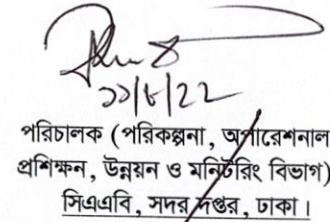 ১১/৮/২২
পরিচালক (পরিকল্পনা, অপারেশনাল
প্রশিক্ষন, উন্নয়ন ও মনিটরিং বিভাগ)
সিএএবি, সদর দপ্তর, ঢাকা।